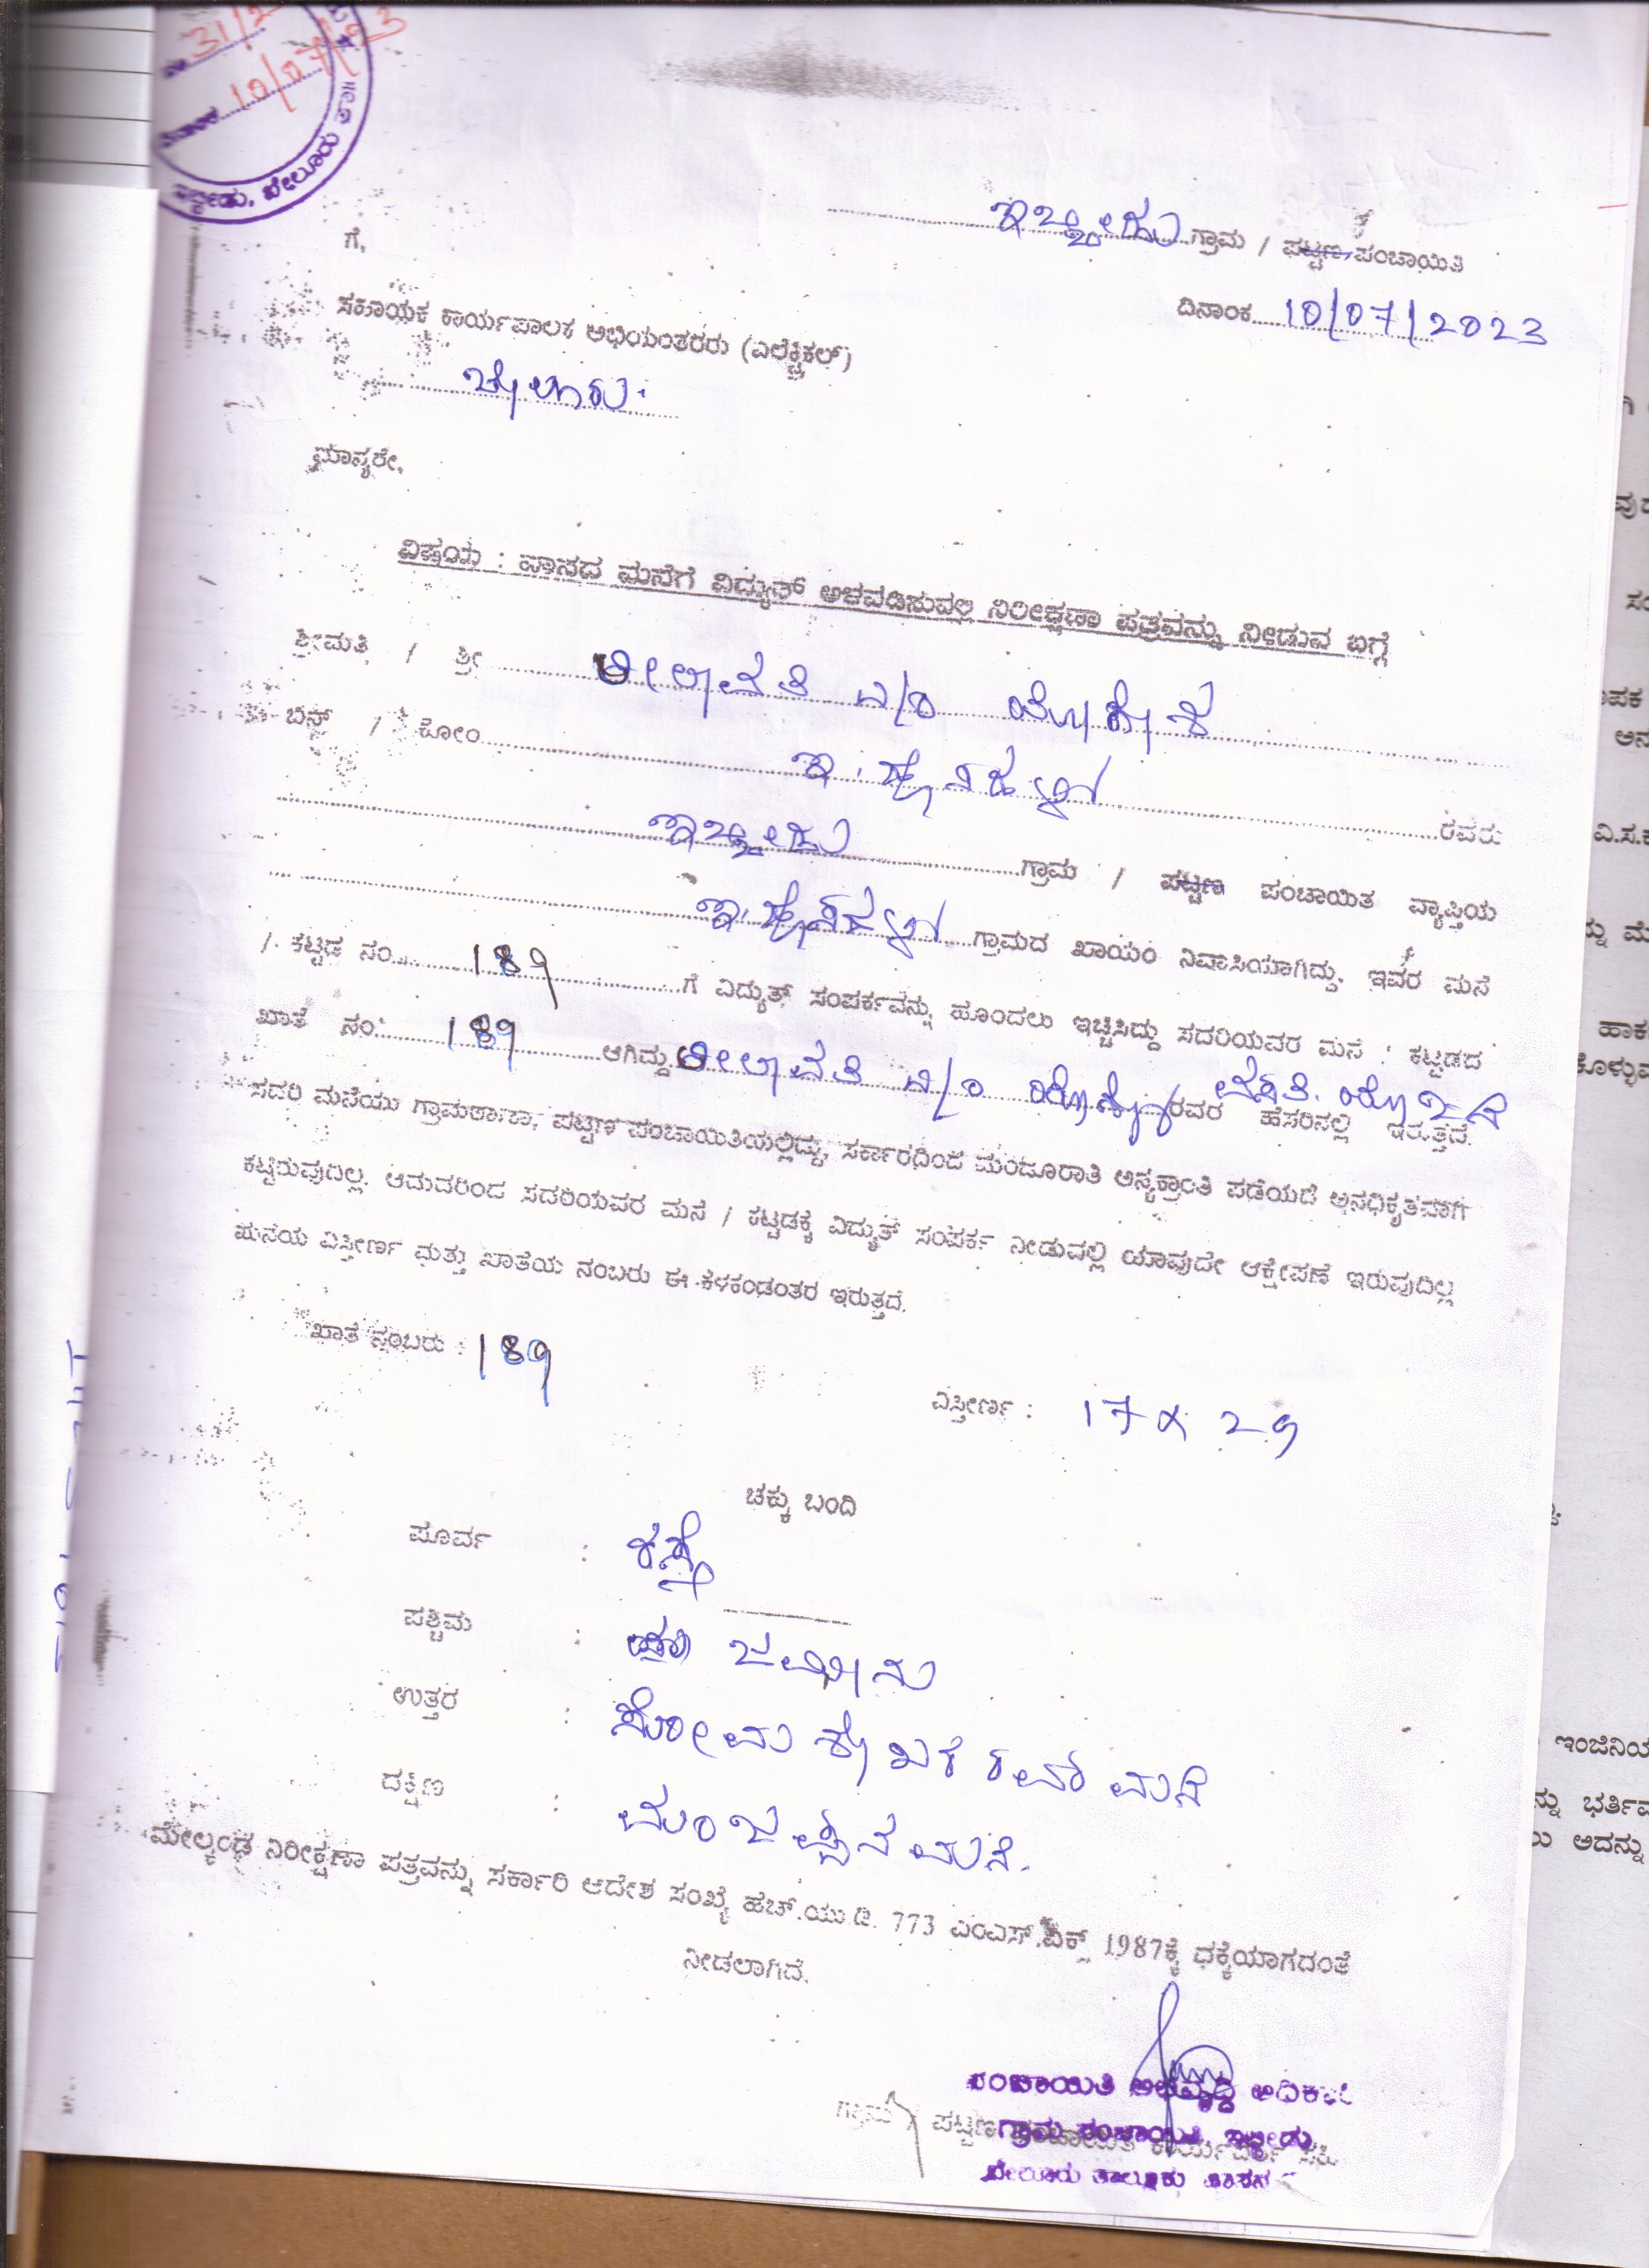 31/2
10/07/23
ಬೇಲೂರು
ಇಬ್ಬೀಡು ಗ್ರಾಮ / ಪಟ್ಟಣ ಪಂಚಾಯಿತಿ
ಗೆ,
ದಿನಾಂಕ 10/07/2023
ಸಹಾಯಕ ಕಾರ್ಯಪಾಲಕ ಅಭಿಯಂತರರು (ಎಲೆಕ್ಟ್ರಿಕಲ್)
ಬೇಲೂರು.
ಮಾನ್ಯರೇ,
ವಿಷಯ : ವಾಸದ ಮನೆಗೆ ವಿದ್ಯುತ್ ಅಳವಡಿಸುವಲ್ಲಿ ನಿರೀಕ್ಷಣಾ ಪತ್ರವನ್ನು ನೀಡುವ ಬಗ್ಗೆ
ಶ್ರೀಮತಿ / ಶ್ರೀ ಲೀಲಾವತಿ W/o ಯೋಗೇಶ
ಬಿನ್ / ಕೋಂ ರವರು
ಇಬ್ಬೀಡು ಗ್ರಾಮ / ಪಟ್ಟಣ ಪಂಚಾಯಿತ ವ್ಯಾಪ್ತಿಯ
ಗ್ರಾಮದ ಖಾಯಂ ನಿವಾಸಿಯಾಗಿದ್ದು, ಇವರ ಮನೆ
/ ಕಟ್ಟಡ ನಂ. 189 ಗೆ ವಿದ್ಯುತ್ ಸಂಪರ್ಕವನ್ನು ಹೊಂದಲು ಇಚ್ಚಿಸಿದ್ದು ಸದರಿಯವರ ಮನೆ / ಕಟ್ಟಡದ
ಖಾತೆ ನಂ. 189 ಆಗಿದ್ದು ಲೀಲಾವತಿ W/o ರವರ ಹೆಸರಿನಲ್ಲಿ ಇರುತ್ತದೆ.
ಸದರಿ ಮನೆಯು ಗ್ರಾಮಠಾಣಾ, ಪಟ್ಟಣ ಪಂಚಾಯಿತಿಯಲ್ಲಿದ್ದು, ಸರ್ಕಾರದಿಂದ ಮಂಜೂರಾತಿ ಅನ್ಯಕ್ರಾಂತಿ ಪಡೆಯದೆ ಅನಧಿಕೃತವಾಗಿ
ಕಟ್ಟಿರುವುದಿಲ್ಲ. ಆದುದರಿಂದ ಸದರಿಯವರ ಮನೆ / ಕಟ್ಟಡಕ್ಕೆ ವಿದ್ಯುತ್ ಸಂಪರ್ಕ ನೀಡುವಲ್ಲಿ ಯಾವುದೇ ಆಕ್ಷೇಪಣೆ ಇರುವುದಿಲ್ಲ
ಮನೆಯ ವಿಸ್ತೀರ್ಣ ಮತ್ತು ಖಾತೆಯ ನಂಬರು ಈ ಕೆಳಕಂಡಂತರ ಇರುತ್ತದೆ.
ಖಾತೆ ನಂಬರು : 189
ವಿಸ್ತೀರ್ಣ : 17 x 29
ಚಕ್ಕು ಬಂದಿ
ಪೂರ್ವ : ರಸ್ತೆ
ಪಶ್ಚಿಮ : ಜಮೀನು
ಉತ್ತರ : ಸೋಮಶೇಖರ ರವರ ಮನೆ
ದಕ್ಷಿಣ : ಮಂಜಪ್ಪನ ಮನೆ.
ಮೇಲ್ಕಂಡ ನಿರೀಕ್ಷಣಾ ಪತ್ರವನ್ನು ಸರ್ಕಾರಿ ಆದೇಶ ಸಂಖ್ಯೆ ಹೆಚ್.ಯು.ಡಿ. 773 ಎಂಎಸ್. 1987ಕ್ಕೆ ಧಕ್ಕೆಯಾಗದಂತೆ
ನೀಡಲಾಗಿದೆ.
ಪಂಚಾಯಿತಿ ಅಭಿವೃದ್ಧಿ ಅಧಿಕಾರಿ
ಗ್ರಾಮ ಪಂಚಾಯಿತಿ, ಇಬ್ಬೀಡು
ಬೇಲೂರು ತಾಲ್ಲೂಕು ಹಾಸನ